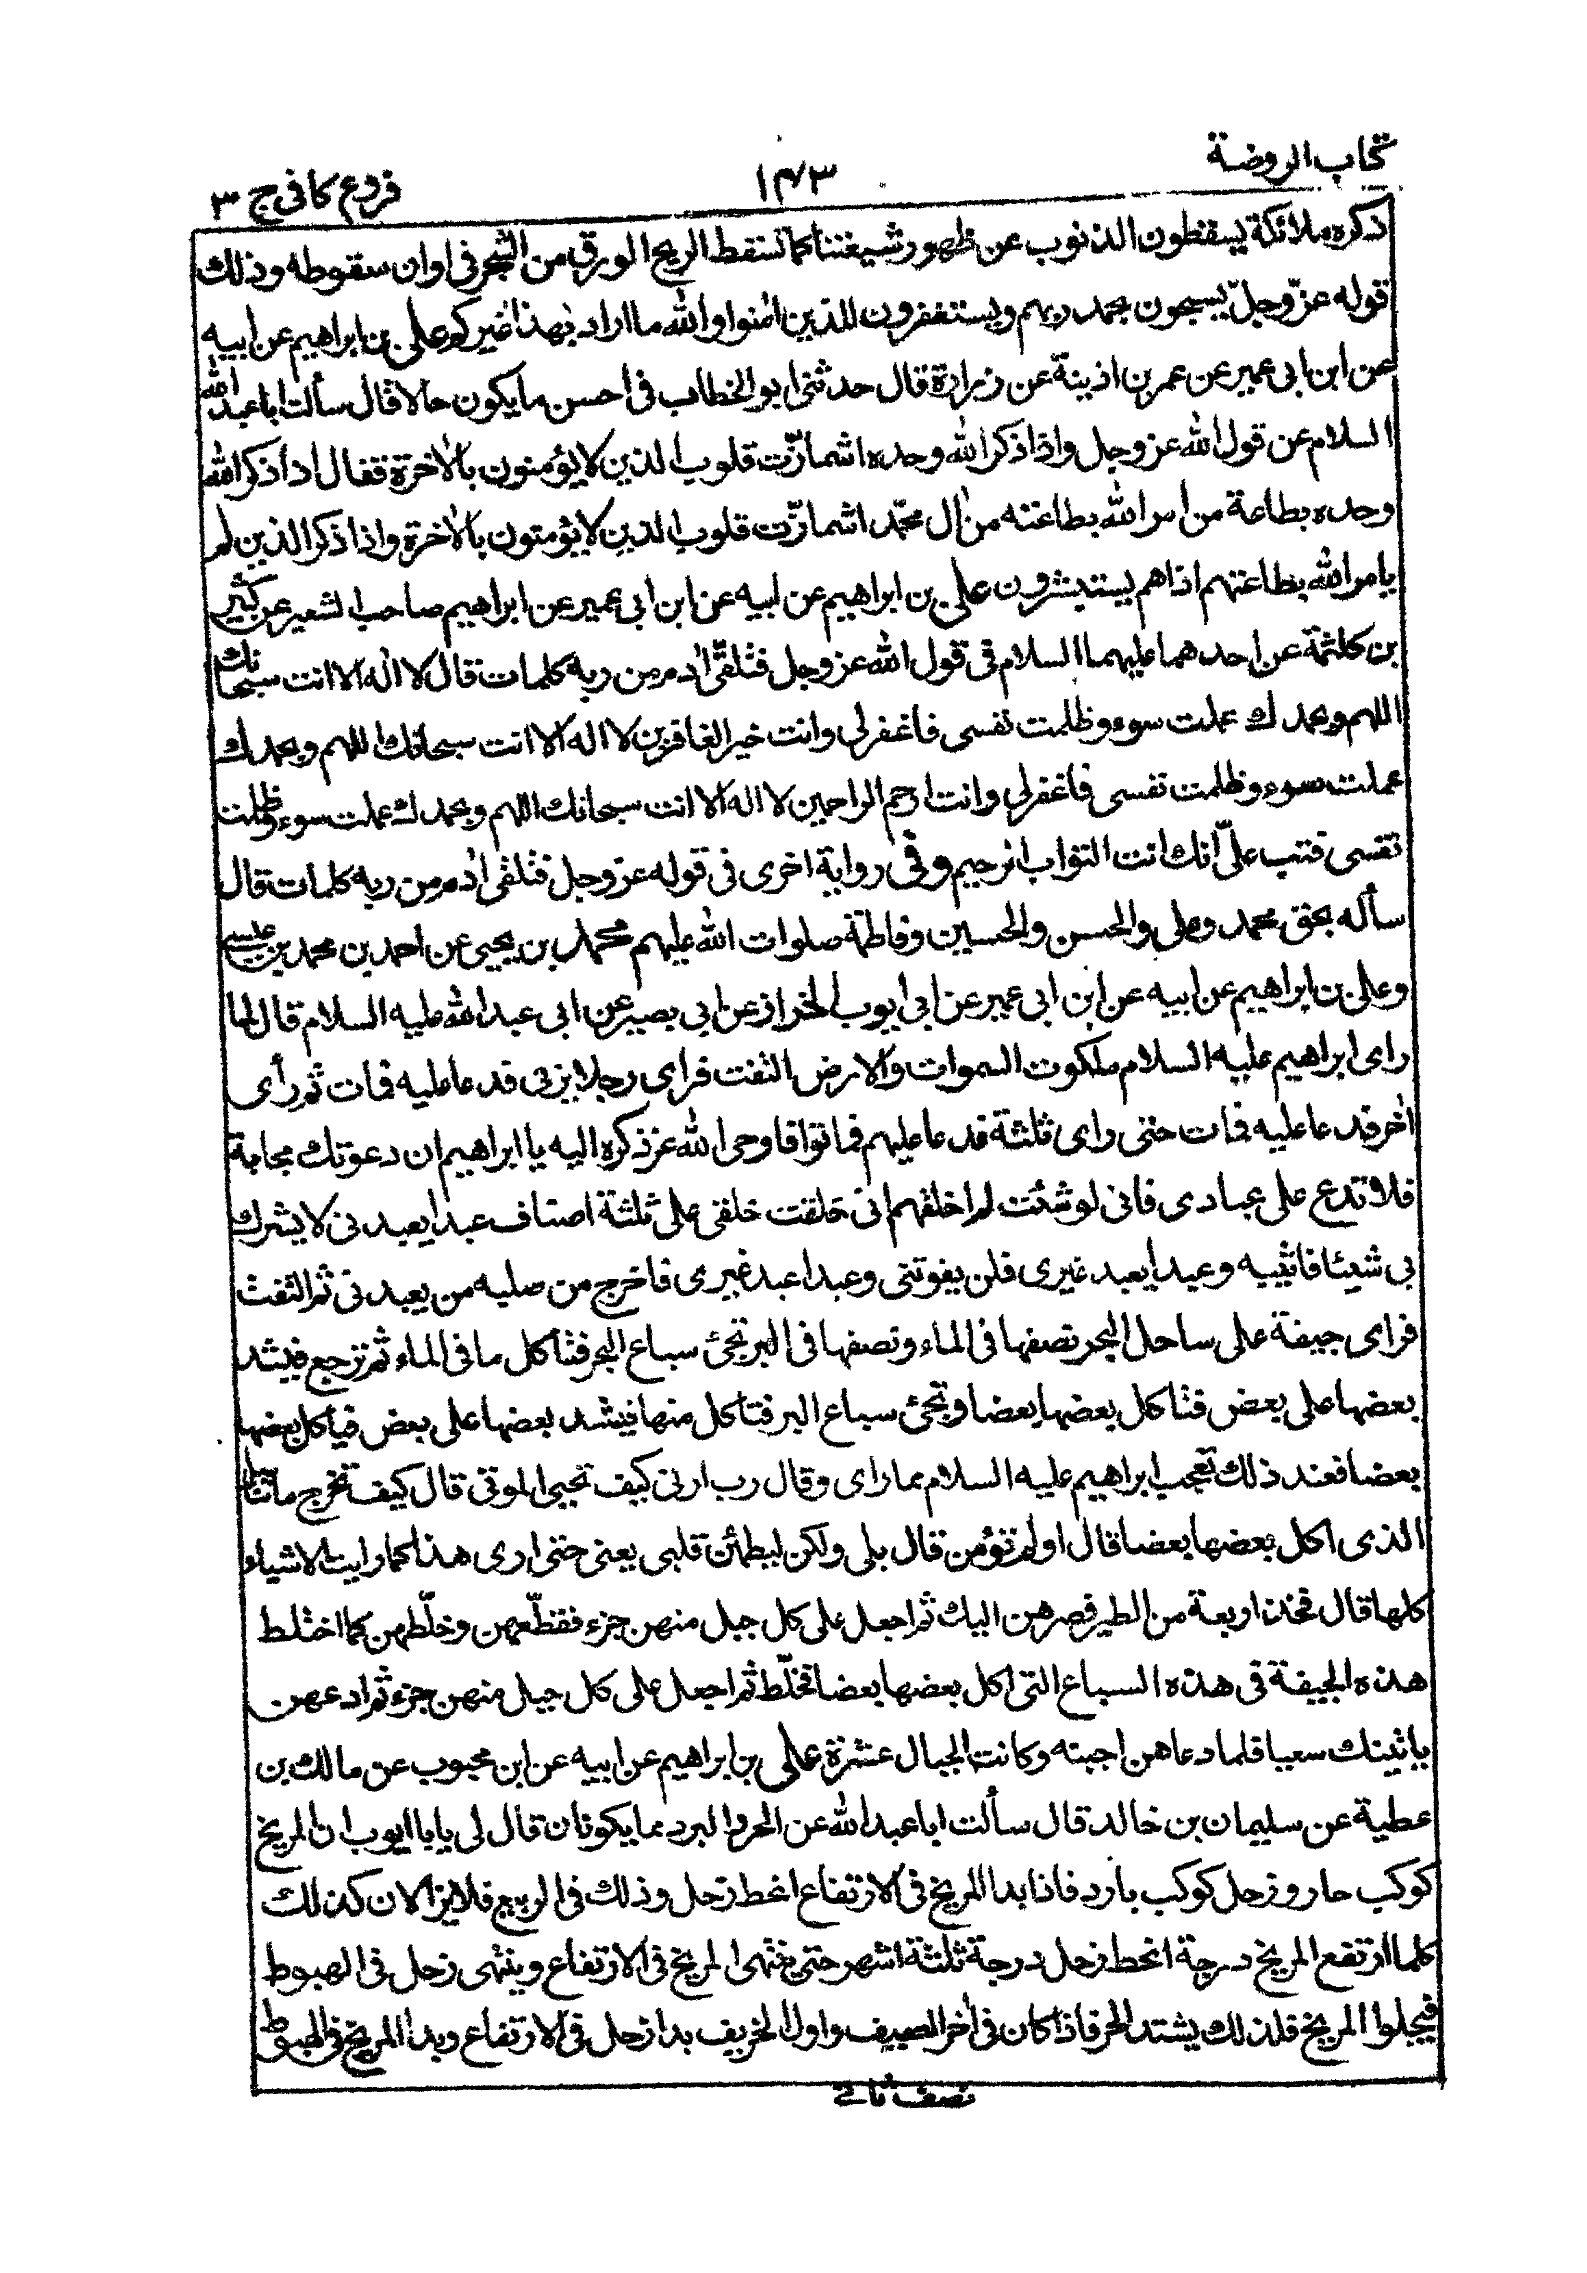 كتاب الروضة
١٤٣
فروع كافى ج ٣
ذكره ملائكة يسقطون الذنوب عن ظهور شيعتنا كما تسقط الريح الورق من الشجر فى اوان سقوطه وذلك
قوله عزّ وجلّ يسبحون بحمد ربهم ويستغفرون للذين اٰمنوا والله ما اراد بهذا غيركم على بن ابراهيم عن ابيه
عن ابن ابى عمير عن عمر بن اذينة عن زرارة قال حدثنى ابو الخطاب فى احسن ما يكون حالا قال سألت ابا عبد الله
السلام عن قول الله عز وجل واذا ذكر الله وحده اشمازّت قلوب الذين لا يؤمنون بالاٰخرة فقال اذا ذكر الله
وحده بطاعة من امر الله بطاعته من اٰل محمّد اشمازّت قلوب الذين لا يؤمنون بالاٰخرة واذا ذكر الذين لم
يامر الله بطاعتهم اذا هم يستبشرون على بن ابراهيم عن ابيه عن ابن ابى عمير عن ابراهيم صاحب الشعير عن كثير
بن كلثمة عن احدهما عليهما السلام فى قول الله عز وجل فتلقّى اٰدم من ربه كلمات قال لا اله الا انت سبحانك
اللهم وبحمدك عملت سوء وظلمت نفسى فاغفر لى وانت خير الغافرين لا اله الا انت سبحانك اللهم وبحمدك
عملت سوء وظلمت نفسى فاغفر لى وانت ارحم الراحمين لا اله الا انت سبحانك اللهم وبحمدك عملت سوء وظلمت
نفسى فتب علىّ انك انت التواب الرحيم وفى رواية اخرى فى قوله عز وجل فتلقى اٰدم من ربه كلمات قال
سأله بحق محمد وعلى والحسن والحسين وفاطمة صلوات الله عليهم محمد بن يحيى عن احمد بن محمد بن عيسى
وعلى بن ابراهيم عن ابيه عن ابن ابى عمير عن ابى ايوب الخراز عن ابى بصير عن ابى عبد الله عليه السلام قال لما
راى ابراهيم عليه السلام ملكوت السموات والارض التفت فراى رجلا يزنى فدعا عليه فمات ثم رأى
اٰخر فدعا عليه فمات حتى راى ثلثة فدعا عليهم فماتوا فاوحى الله عز ذكره اليه يا ابراهيم ان دعوتك مجابة
فلا تدع على عبادى فانى لو شئت لم اخلقهم انى خلقت خلقى على ثلثة اصناف عبدا يعبدنى لا يشرك
بى شيئا فاثيبه وعبدا يعبد غيرى فلن يفوتنى وعبدا عبد غيرى فاخرج من صلبه من يعبدنى ثم التفت
فراى جيفة على ساحل البحر نصفها فى الماء ونصفها فى البر تجئ سباع البحر فتاكل ما فى الماء ثم ترجع فيشد
بعضها على بعض فتاكل بعضها بعضا وتجئ سباع البر فتاكل منها فيشد بعضها على بعض فياكل بعضها
بعضا فعند ذلك تعجب ابراهيم عليه السلام مما راى وقال رب ارنى كيف تحيى الموتى قال كيف تخرج ما تناسل
الذى اكل بعضها بعضا قال اولم تؤمن قال بلى ولكن ليطمئن قلبى يعنى حتى ارى هذا كما رايت الاشياء
كلها قال فخذ اربعة من الطير فصرهن اليك ثم اجعل على كل جبل منهن جزء فقطّعهن وخلّطهن كما اختلط
هذه الجيفة فى هذه السباع التى اكل بعضها بعضا فخلّط ثم اجعل على كل جبل منهن جزء ثم ادعهن
ياتينك سعيا فلما دعاهن اجبته وكانت الجبال عشرة على بن ابراهيم عن ابيه عن ابن محبوب عن مالك بن
عطية عن سليمان بن خالد قال سألت ابا عبد الله عن الحر والبرد مما يكونان قال لى يا ابا ايوب ان المريخ
كوكب حار وزحل كوكب بارد فاذا بدا المريخ فى الارتفاع انحط زحل وذلك فى الربيع فلا يزالان كذلك
كلما ارتفع المريخ درجة انحط زحل درجة ثلثة اشهر حتى ينتهى المريخ فى الارتفاع وينتهى زحل فى الهبوط
فيجلوا المريخ فلذلك يشتد الحر فاذا كان فى اٰخر الصيف واول الخريف بدا زحل فى الارتفاع وبدا المريخ فى الهبوط
نصف ثانے